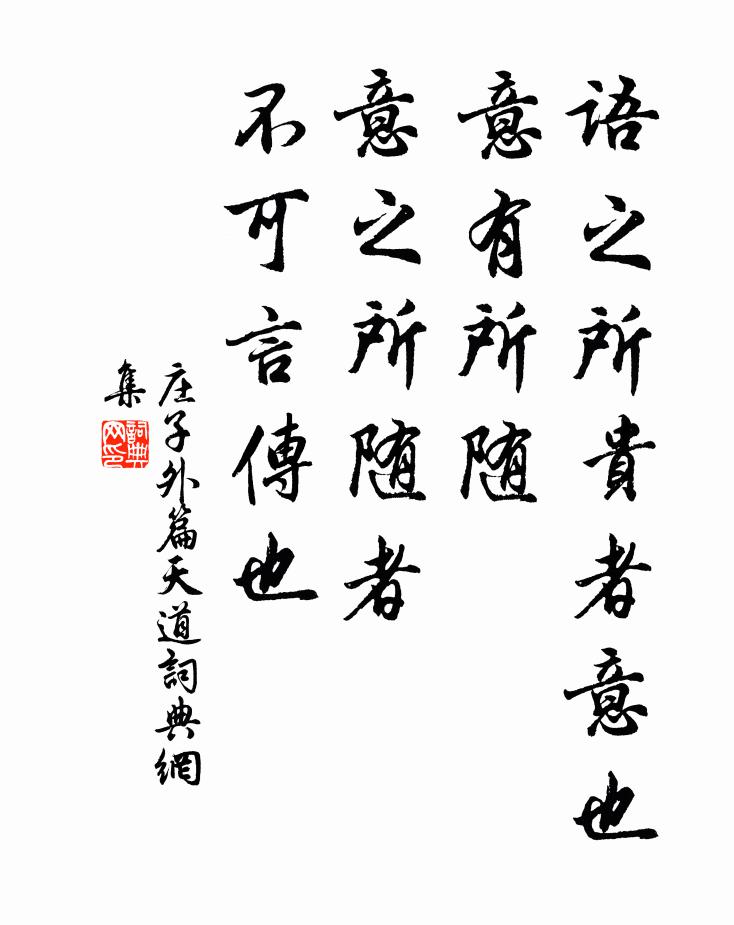 语之所貴者意也
意有所随
意之所随者
不可言傳也
庄子外篇天道詞典網
集
詞典网印